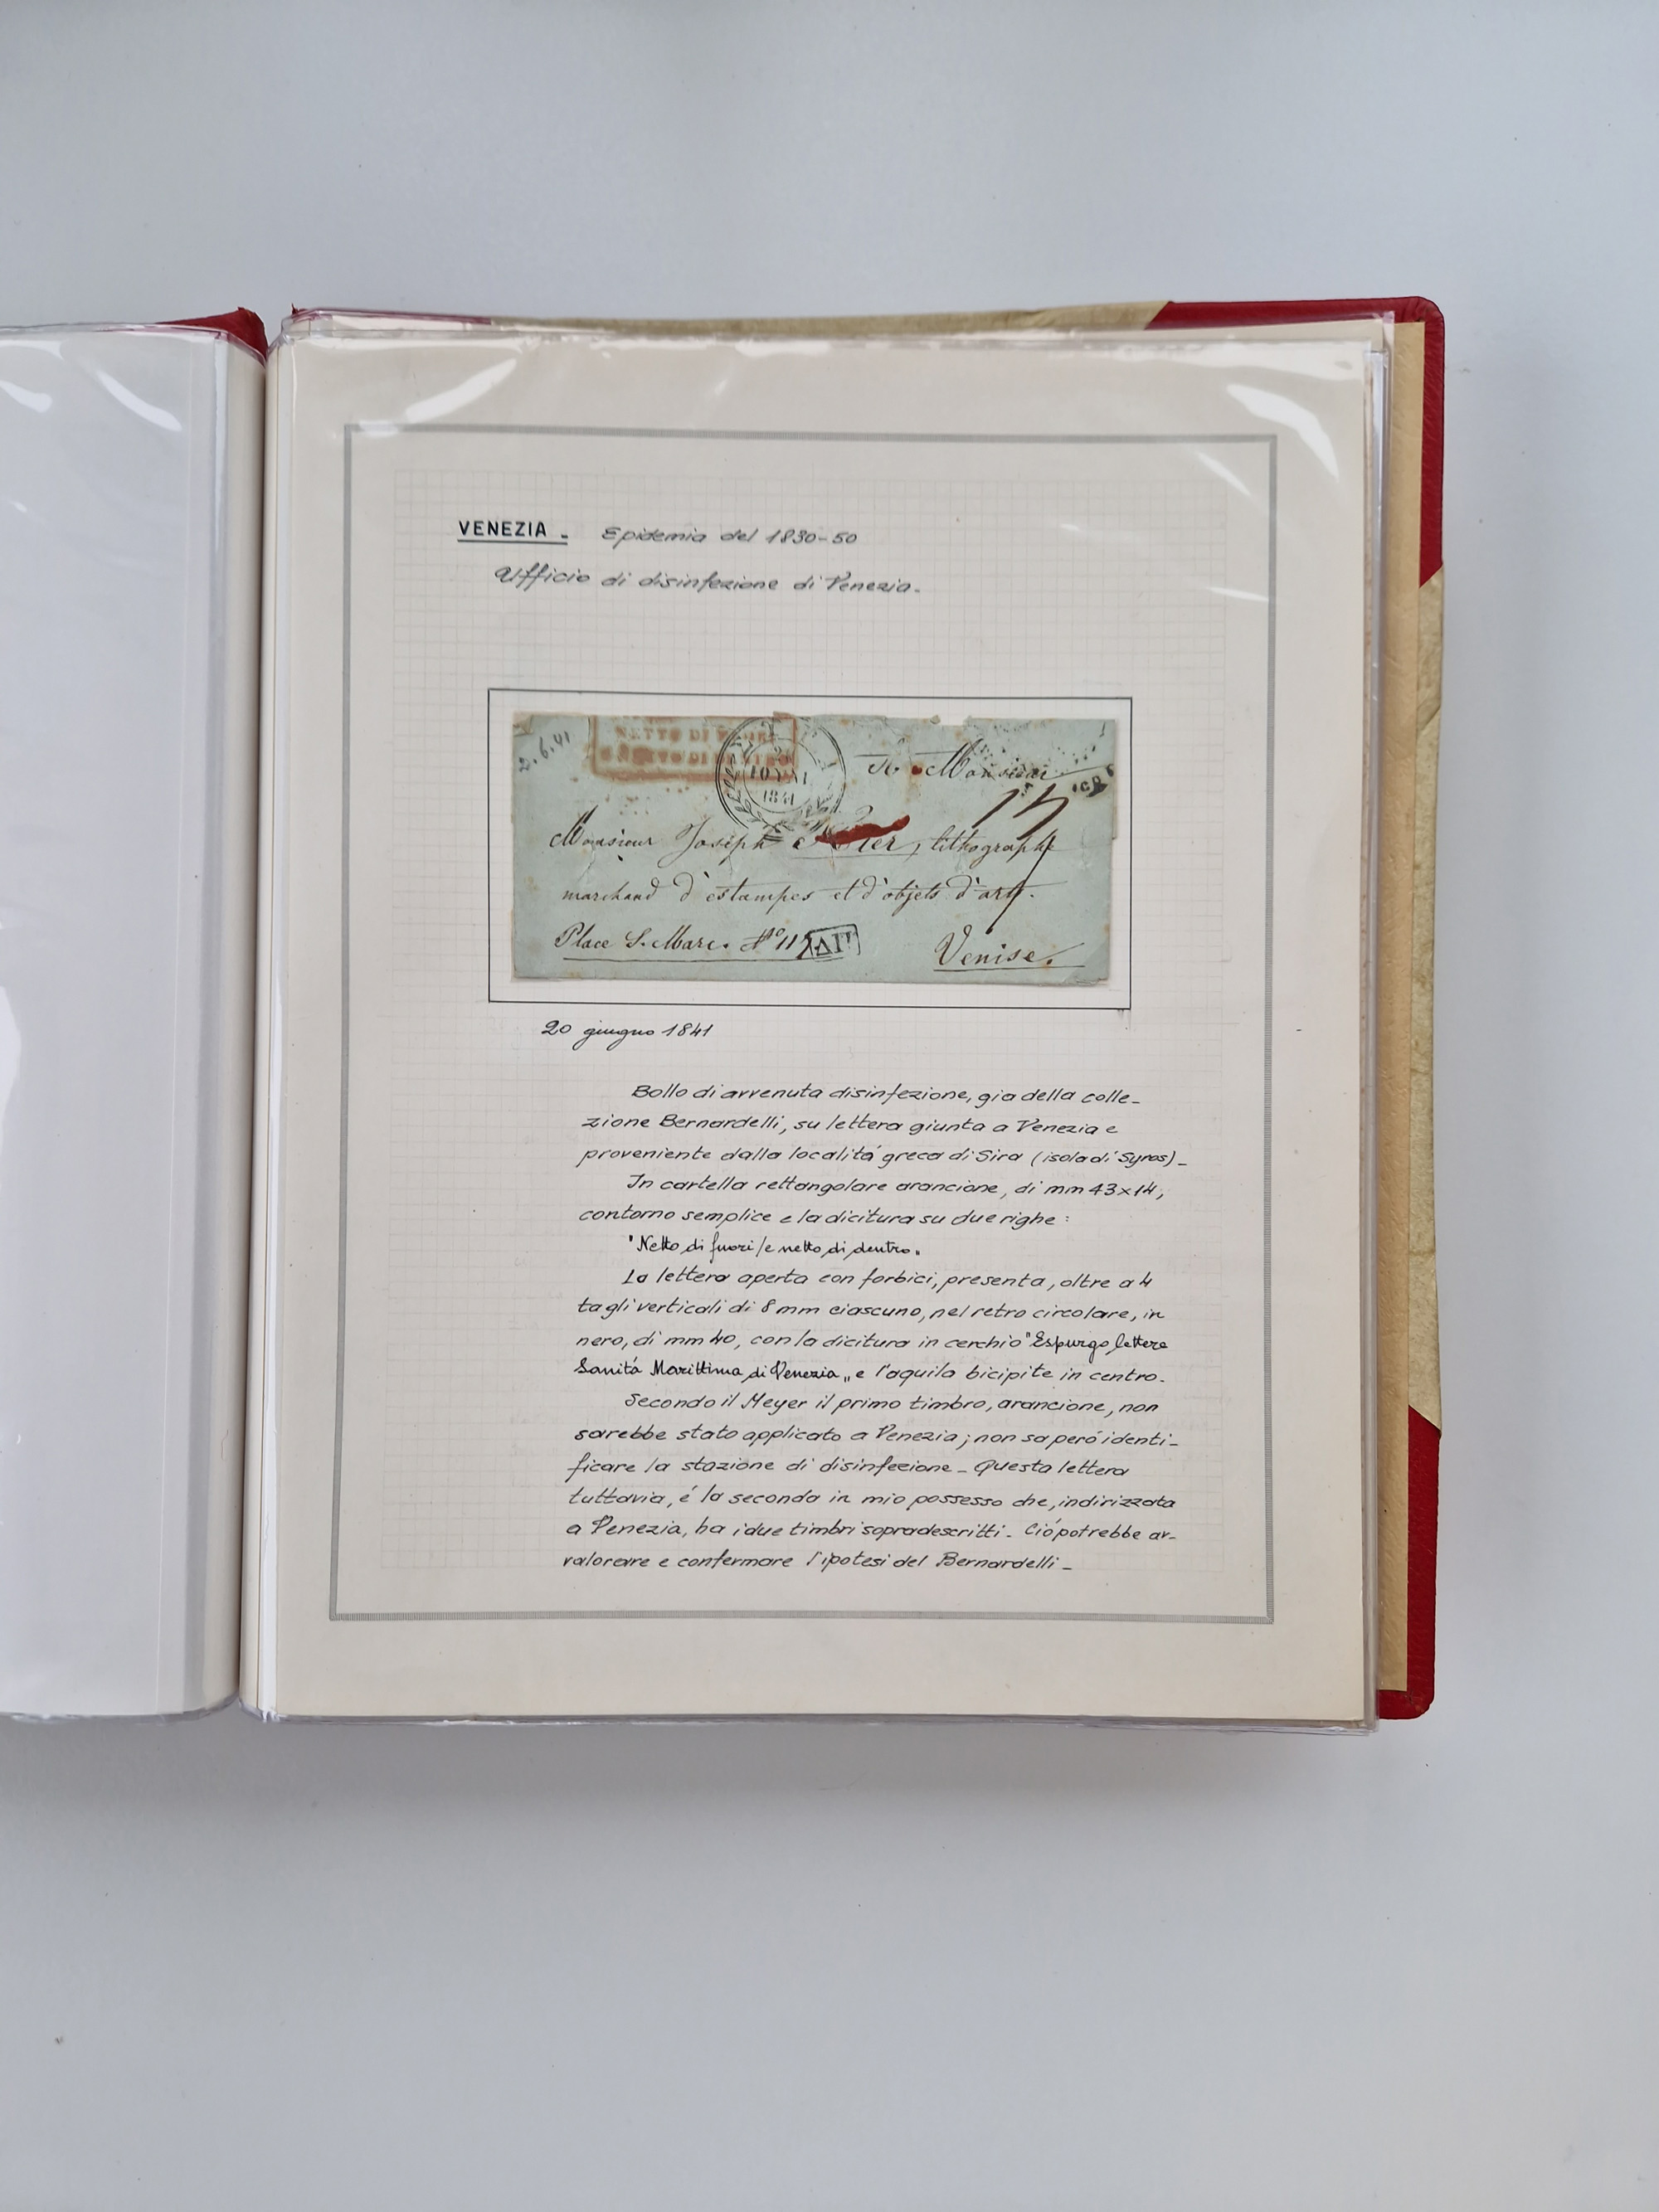 VENEZIA - Epidemia del 1830-50
Ufficio di disinfezione di Venezia.
NETTO DI
DI
10
1841
Monsieur
Monsieur Joseph lithographe
marchand d'estampes et d'objets d'art.
Place S. Marc. Nº 11
Venise.
20 giugno 1841
Bollo di avvenuta disinfezione, gia della colle-
zione Bernardelli, su lettera giunta a Venezia e
proveniente dalla localitá greca di Sira (isola di Syros)-
In cartella rettangolare arancione, di mm 43x14,
contorno semplice e la dicitura su due righe:
"Netto di fuori/e netto di dentro"
La lettera aperta con forbici, presenta, oltre a 4
tagli verticali di 8 mm ciascuno, nel retro circolare, in
nero, di mm 40, con la dicitura in cerchio "Espurgo lettere
Sanitá Marittima di Venezia" e l'aquila bicipite in centro.
Secondo il Meyer il primo timbro, arancione, non
sarebbe stato applicato a Venezia; non sa peró identi-
ficare la stazione di disinfezione- Questa lettera
tuttavia, é la seconda in mio possesso che, indirizzata
a Venezia, ha i due timbri sopradescritti- Ció potrebbe av-
valorare e confermare l'ipotesi del Bernardelli-